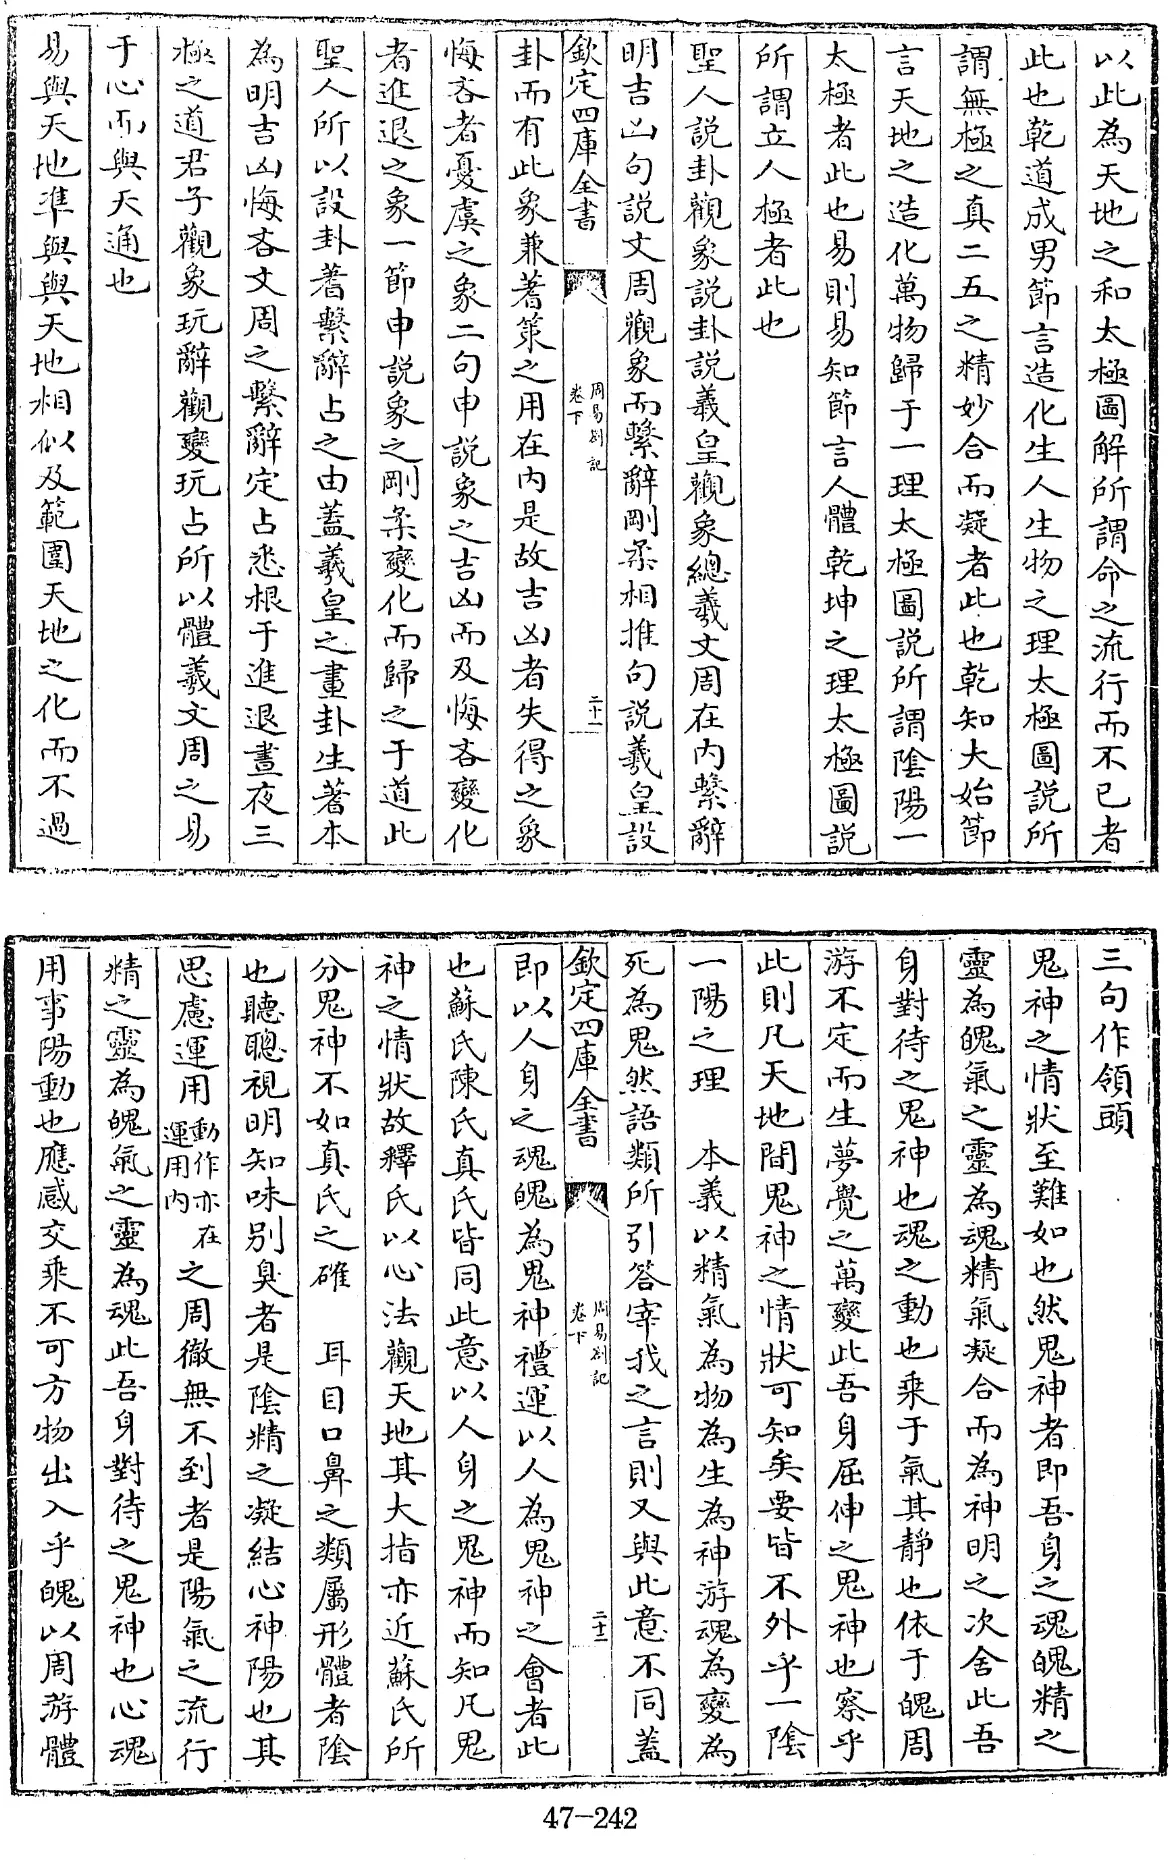 以此為天地之和太極圖解所謂命之流行而不已者
此也乾道成男節言造化生人生物之理太極圖說所
謂無極之真二五之精妙合而凝者此也乾知大始節
言天地之造化萬物歸于一理太極圖說所謂陰陽一
太極者此也易則易知節言人體乾坤之理太極圖說
所謂立人極者此也
聖人說卦觀象說卦說羲皇觀象總羲文周在內繫辭
明吉凶句說文周觀象而繫辭剛柔相推句說羲皇設
欽定四庫全書
周易劄記
卷下
二十一
卦而有此象兼蓍策之用在內是故吉凶者失得之象
悔吝者憂虞之象二句申說象之吉凶而及悔吝變化
者進退之象一節申說象之剛柔變化而歸之于道此
聖人所以設卦著繫辭占之由蓋羲皇之畫卦生蓍本
為明吉凶悔吝文周之繫辭定占悉根于進退晝夜三
極之道君子觀象玩辭觀變玩占所以體羲文周之易
于心而與天通也
易與天地準與與天地相似及範圍天地之化而不過
三句作領頭
鬼神之情狀至難知也然鬼神者即吾身之魂魄精之
靈為魄氣之靈為魂精氣凝合而為神明之次舍此吾
身對待之鬼神也魂之動也乘于氣其靜也依于魄周
游不定而生夢覺之萬變此吾身屈伸之鬼神也察乎
此則凡天地間鬼神之情狀可知矣要皆不外乎一陰
一陽之理 本義以精氣為物為生為神游魂為變為
死為鬼然語類所引答宰我之言則又與此意不同蓋
欽定四庫全書
周易劄記
卷下
二十二
即以人身之魂魄為鬼神禮運以人為鬼神之會者此
也蘇氏陳氏真氏皆同此意以人身之鬼神而知凡鬼
神之情狀故釋氏以心法觀天地其大指亦近蘇氏所
分鬼神不如真氏之確 耳目口鼻之類屬形體者陰
也聽聰視明知味別臭者是陰精之凝結心神陽也其
思慮運用動作亦在運用內之周徹無不到者是陽氣之流行
精之靈為魄氣之靈為魂此吾身對待之鬼神也心魂
用事陽動也應感交乘不可方物出入乎魄以周游體
47-242